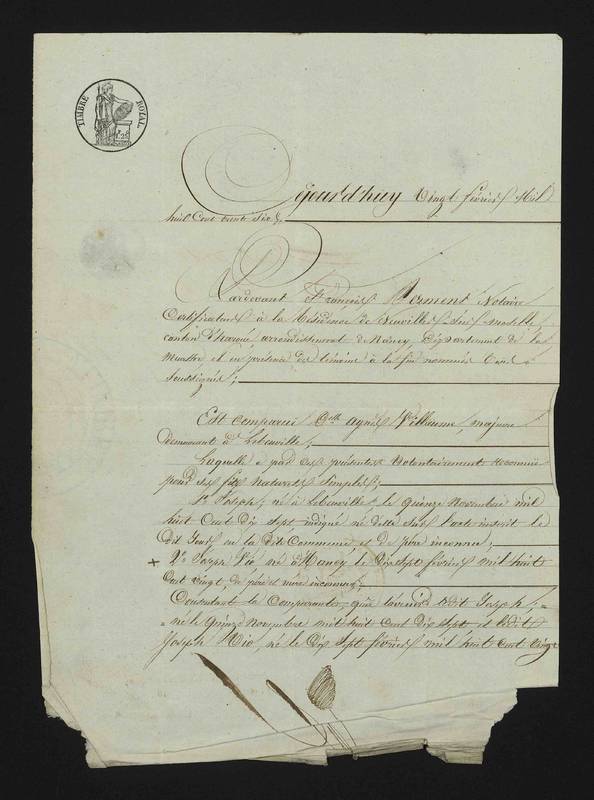 TIMBRE ROYAL
jourd'huy Vingt février Mil
huit Cent trente Six,
Pardevant François Morment Notaire
Certificateur à la Résidence de Neuviller-Sur-Moselle
canton d'haroué arrondissement de Nancy, Département de la
Meurthe et en présence de témoins à la fin nommés
soussignés;
Est comparue Dlle Agnès Vilhaume, majeure
demeurant à Lebeuville;
Laquelle a par ces présentes volontairement reconnu
pour ses fils naturels simples;
1° Joseph, né à Lebeuville le quinze Novembre mil
huit Cent dix sept indiqué né d'elle dans l'acte inscrit le
dit Jour en la dite Commune et de père inconnu;
2° Joseph né à Nancy le Dix sept février mil huit
Cent vingt, de père et mère inconnus;
Consentant la Comparante, que ledit Joseph;
né le quinze Novembre mil huit Cent Dix sept et ledit
Joseph né le Dix sept février mil huit Cent vingt